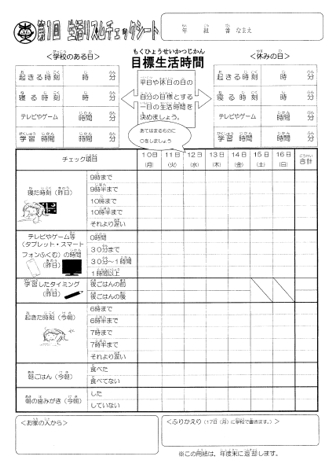 第1回 生活リズムチェックシート
年 組 番 なまえ
もくひょうせいかつじかん
目標生活時間
<学校のある日>
起きる時刻 時 分
寝る時刻 時 分
テレビやゲーム 時間 分
学習時間 時間 分
平日や休日の日の
自分の目標とする
一日の生活時間を
決めましょう。
あてはまるものに
○をしましょう
<休みの日>
起きる時刻 時 分
寝る時刻 時 分
テレビやゲーム 時間 分
学習時間 時間 分
チェック項目 10日(月) 11日(火) 12日(水) 13日(木) 14日(金) 15日(土) 16日(日) 合計
寝た時刻(昨日)
9時まで
9時半まで
10時まで
10時半まで
それより遅い
テレビやゲーム等
(タブレット・スマート
フォンふくむ)の時間
(昨日)
0時間
30分まで
30分～1時間
1時間以上
学習したタイミング
(昨日)
夜ごはんの前
夜ごはんの後
起きた時刻(今朝)
6時まで
6時半まで
7時まで
7時半まで
それより遅い
朝ごはん(今朝)
食べた
食べてない
朝の歯みがき(今朝)
した
していない
<お家の人から>
<ふりかえり(17日(月)に学校で書きます。)>
※この用紙は、年度末に返却します。